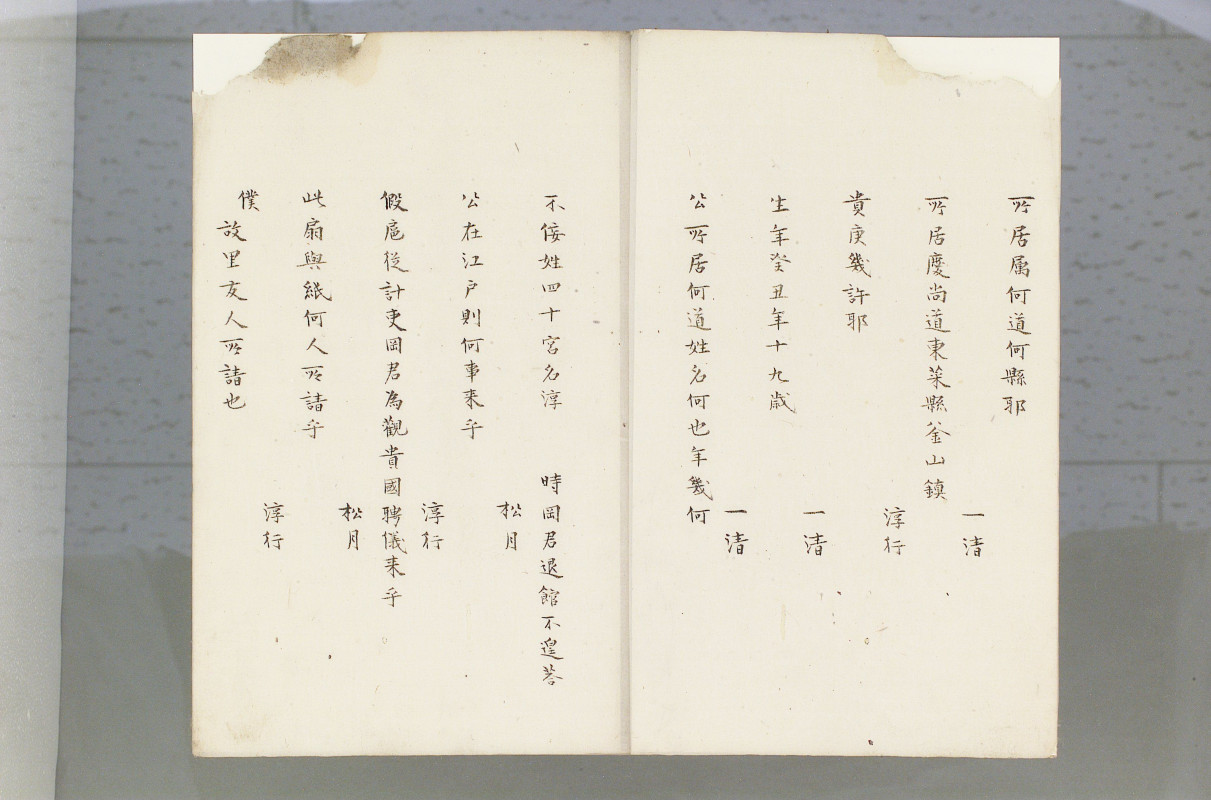 所居属何道何縣耶
一清
所居慶尚道東萊縣釜山鎮
淳行
貴庚幾許耶
一清
生年癸丑年十九歳
一清
公所居何道姓名何也年幾何
不佞姓四十宮名淳 時岡君退館不遑答
松月
公在江戸則何事来乎
淳行
假扈従計吏岡君為觀貴國聘儀来乎
松月
此扇與紙何人所請乎
淳行
僕
故里友人所請也